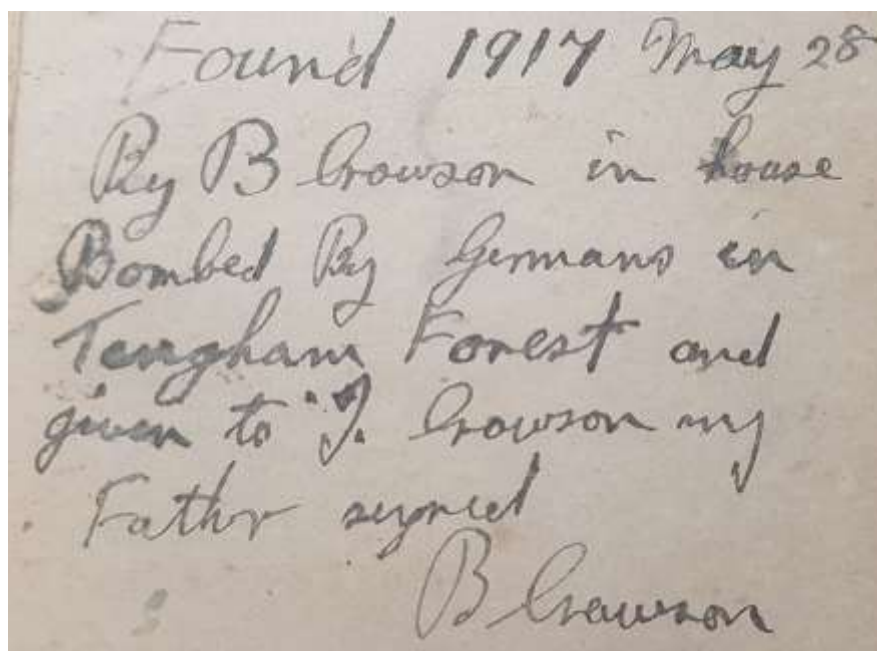 Found 1917 May 28
By B Crowson in house
Bombed By Germans in
Tangham Forest and
given to J. Crowson my
Fathr signed
B Crowson